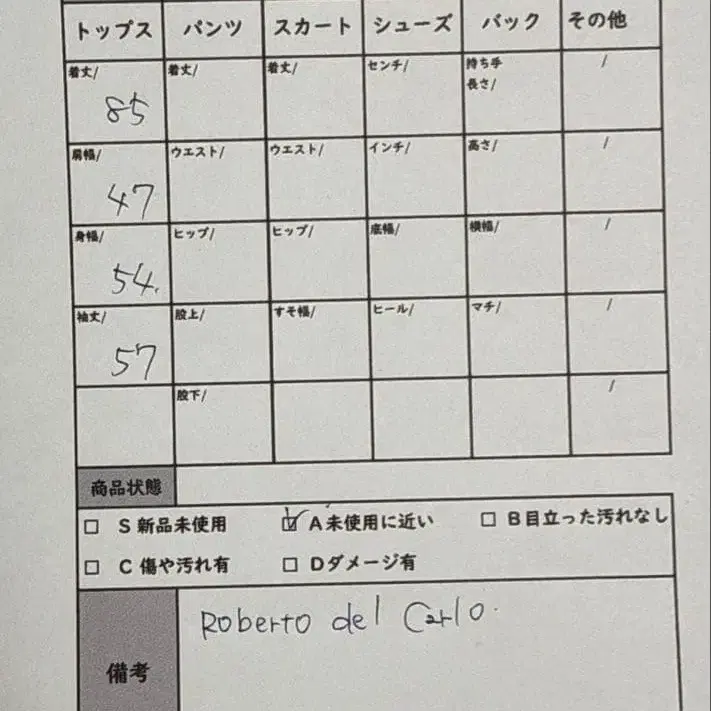 トップス パンツ スカート シューズ バック その他
着丈/ 着丈/ 着丈/ センチ/ 持ち手 /
長さ/
85
肩幅/ ウエスト/ ウエスト/ インチ/ 高さ/ /
47
身幅/ ヒップ/ ヒップ/ 底幅/ 横幅/ /
54.
袖丈/ 股上/ すそ幅/ ヒール/ マチ/ /
57
股下/ /
商品状態
□ S 新品未使用 ☑ A 未使用に近い □ B 目立った汚れなし
□ C 傷や汚れ有 □ Dダメージ有
Roberto del Carlo.
備考